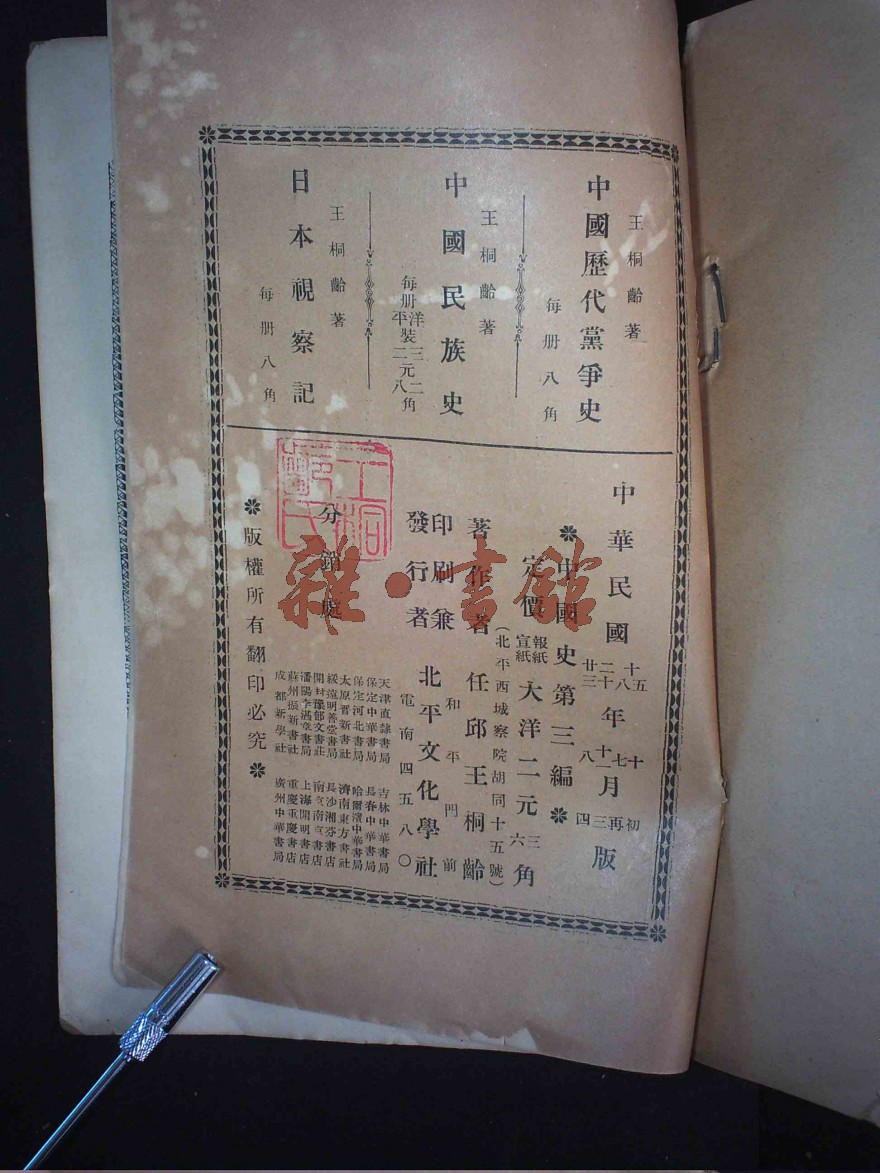 王桐齡著
中國歷代黨爭史
每册八角
王桐齡著
中國民族史
每册洋裝三元二角
平裝二元八角
王桐齡著
日本視察記
每册八角
中華民國十五 十八 二十 廿三年十 七 十一 八月初再三四版
中國史第三編
定價報紙宣紙大洋二元三六角
(北平西城察院胡同十五號)
著作者 任邱王桐齡
印刷兼
發行者
和平門前
北平文化學社
電南四五八〇
分銷處
天津直隸書局
保定中華書局
保定河北書局
太原晋新書社
綏遠明善堂書局
開封豫郁文書莊
成都新學社
吉林中華書局
長春中華書局
哈爾濱中華書局
濟南東方書社
長沙湘芬書局
上海開明書店
重慶重慶書店
廣州中華書局
版權所有翻印必究
王桐齡氏
雜·書館